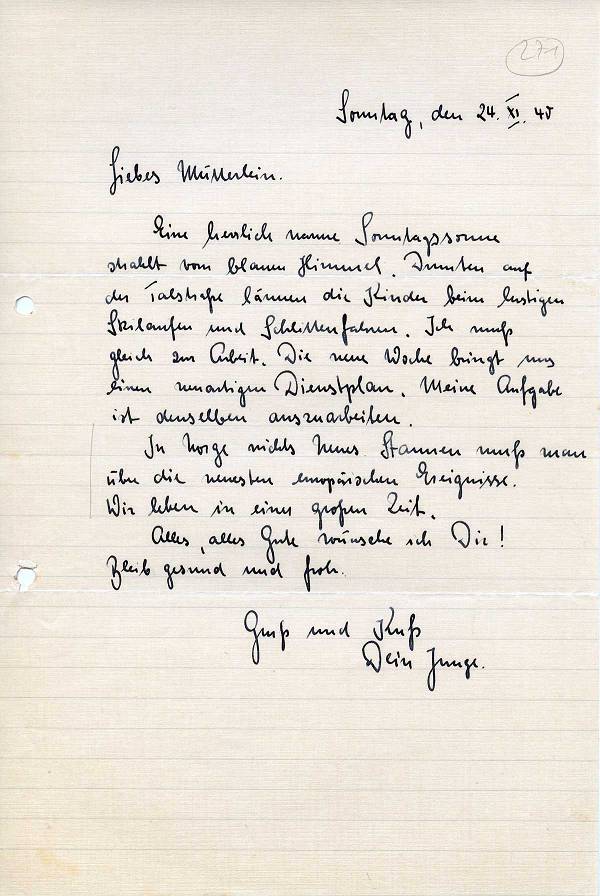 271
Sonntag, den 24. XI. 40
Liebes Mütterlein.
Eine herrlich warme Sonntagssonne
strahlt vom blauen Himmel. Drunten auf
der Talstraße lärmen die Kinder beim lustigen
Skilaufen und Schlittenfahren. Ich muß
gleich zur Arbeit. Die neue Woche bringt uns
einen neuartigen Dienstplan. Meine Aufgabe
ist denselben auszuarbeiten.
In Norge nichts Neues. Staunen muß man
über die neuesten europäischen Ereignisse.
Wir leben in einer großen Zeit.
Alles, alles Gute wünsche ich Dir!
Bleib gesund und froh.
Gruß und Kuß
Dein Junge.